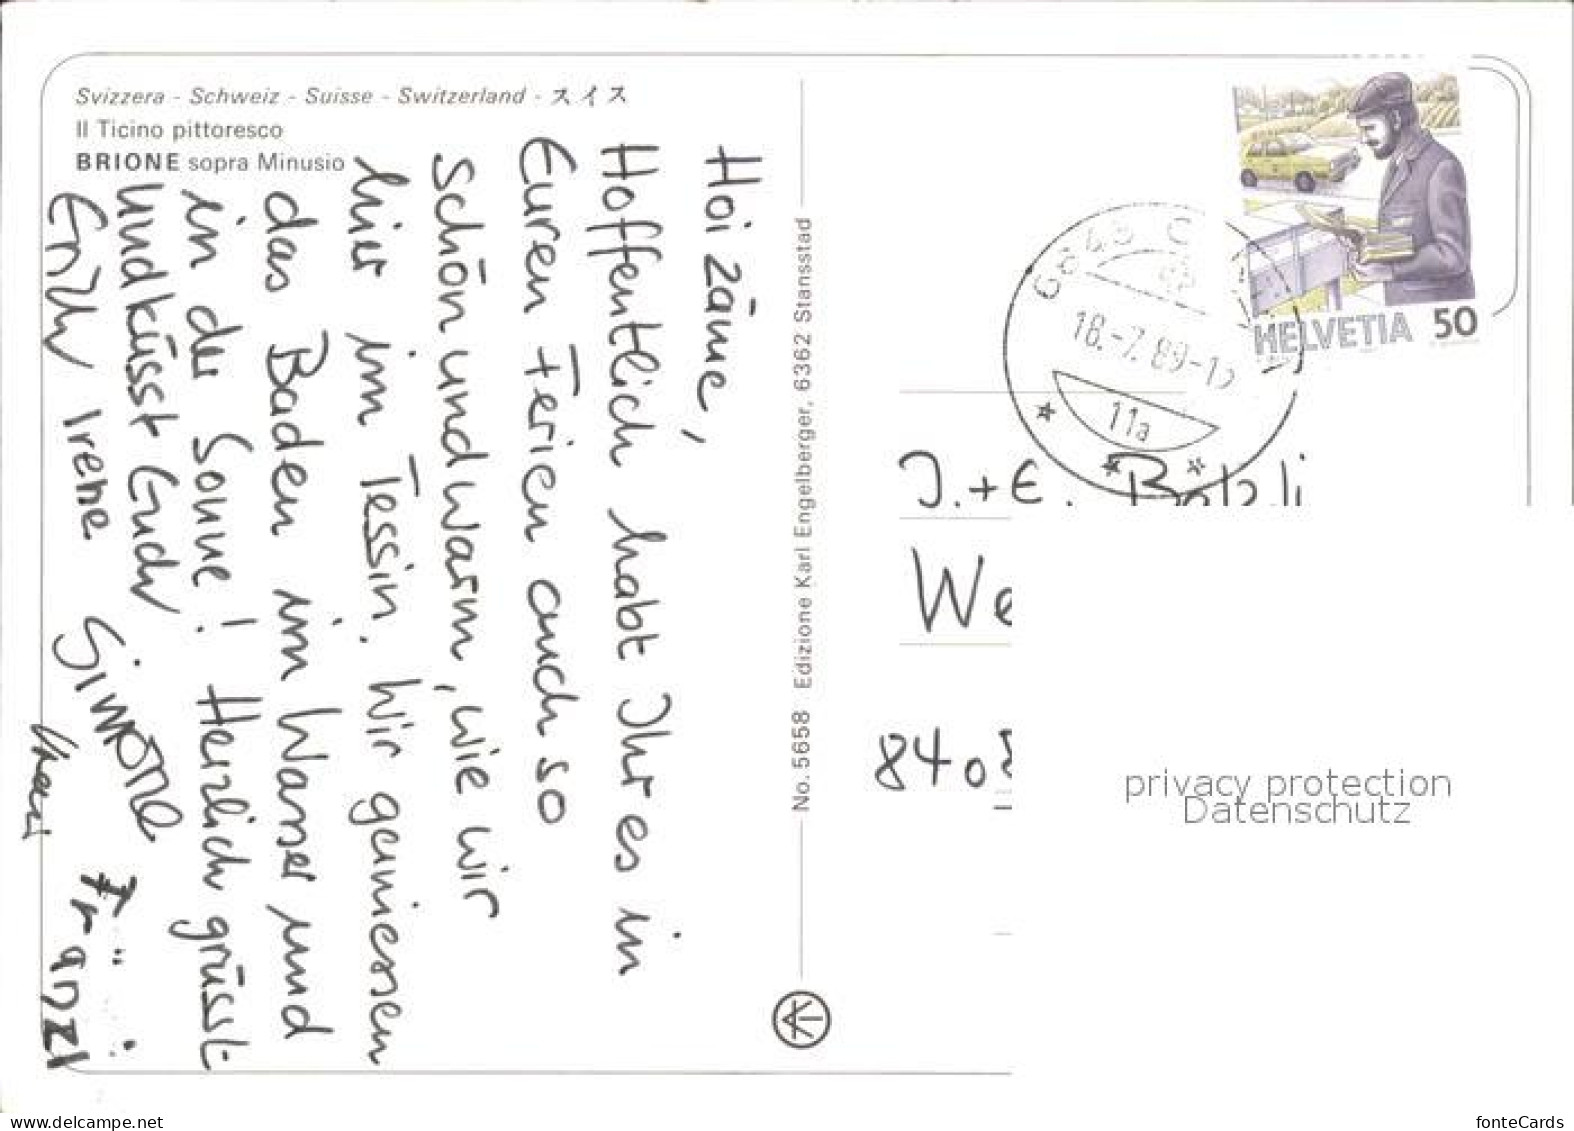 Svizzera - Schweiz - Suisse - Switzerland - スイス
Il Ticino pittoresco
BRIONE sopra Minusio
Hoi zäme,
Hoffentlich habt Ihr es in
Euren Ferien auch so
schön und warm, wie wir
hier im Tessin. Wir geniessen
das Baden im Wasser und
in der Sonne! Herzlich grüsst
und küsst Euch
Irene Simone
Fränzi
No. 5658 Edizione Karl Engelberger, 6362 Stansstad
HELVETIA 50
18.-7.89-
11a
J. + E.
We
840
privacy protection
Datenschutz
www.delcampe.net
fonteCards